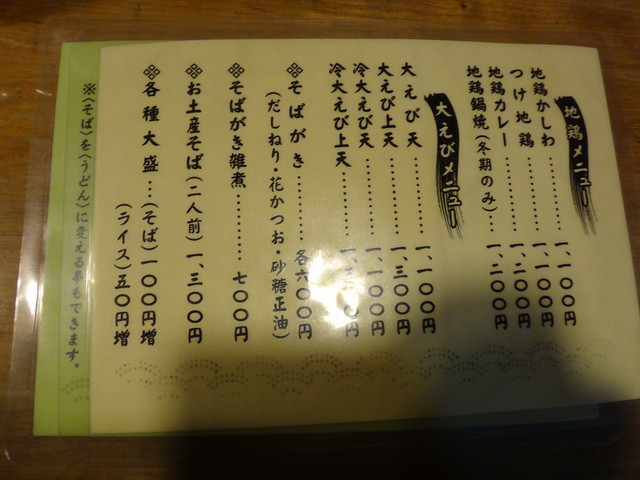 地鶏メニュー
地鶏かしわ…………一、一〇〇円
つけ地鶏…………一、一〇〇円
地鶏カレー…………一、二〇〇円
地鶏鍋焼(冬期のみ)…一、二〇〇円
大えびメニュー
大えび天…………一、一〇〇円
大えび上天…………一、三〇〇円
冷大えび天…………一、一〇〇円
冷大えび上天…………一、三〇〇円
※そばがき…………各六〇〇円
(だしねり・花かつお・砂糖正油)
※そばがき雑煮…………七〇〇円
※お土産そば(二人前)一、三〇〇円
※各種大盛…(そば)一〇〇円増
(ライス)五〇円増
※〈そば〉を〈うどん〉に変える事もできます。